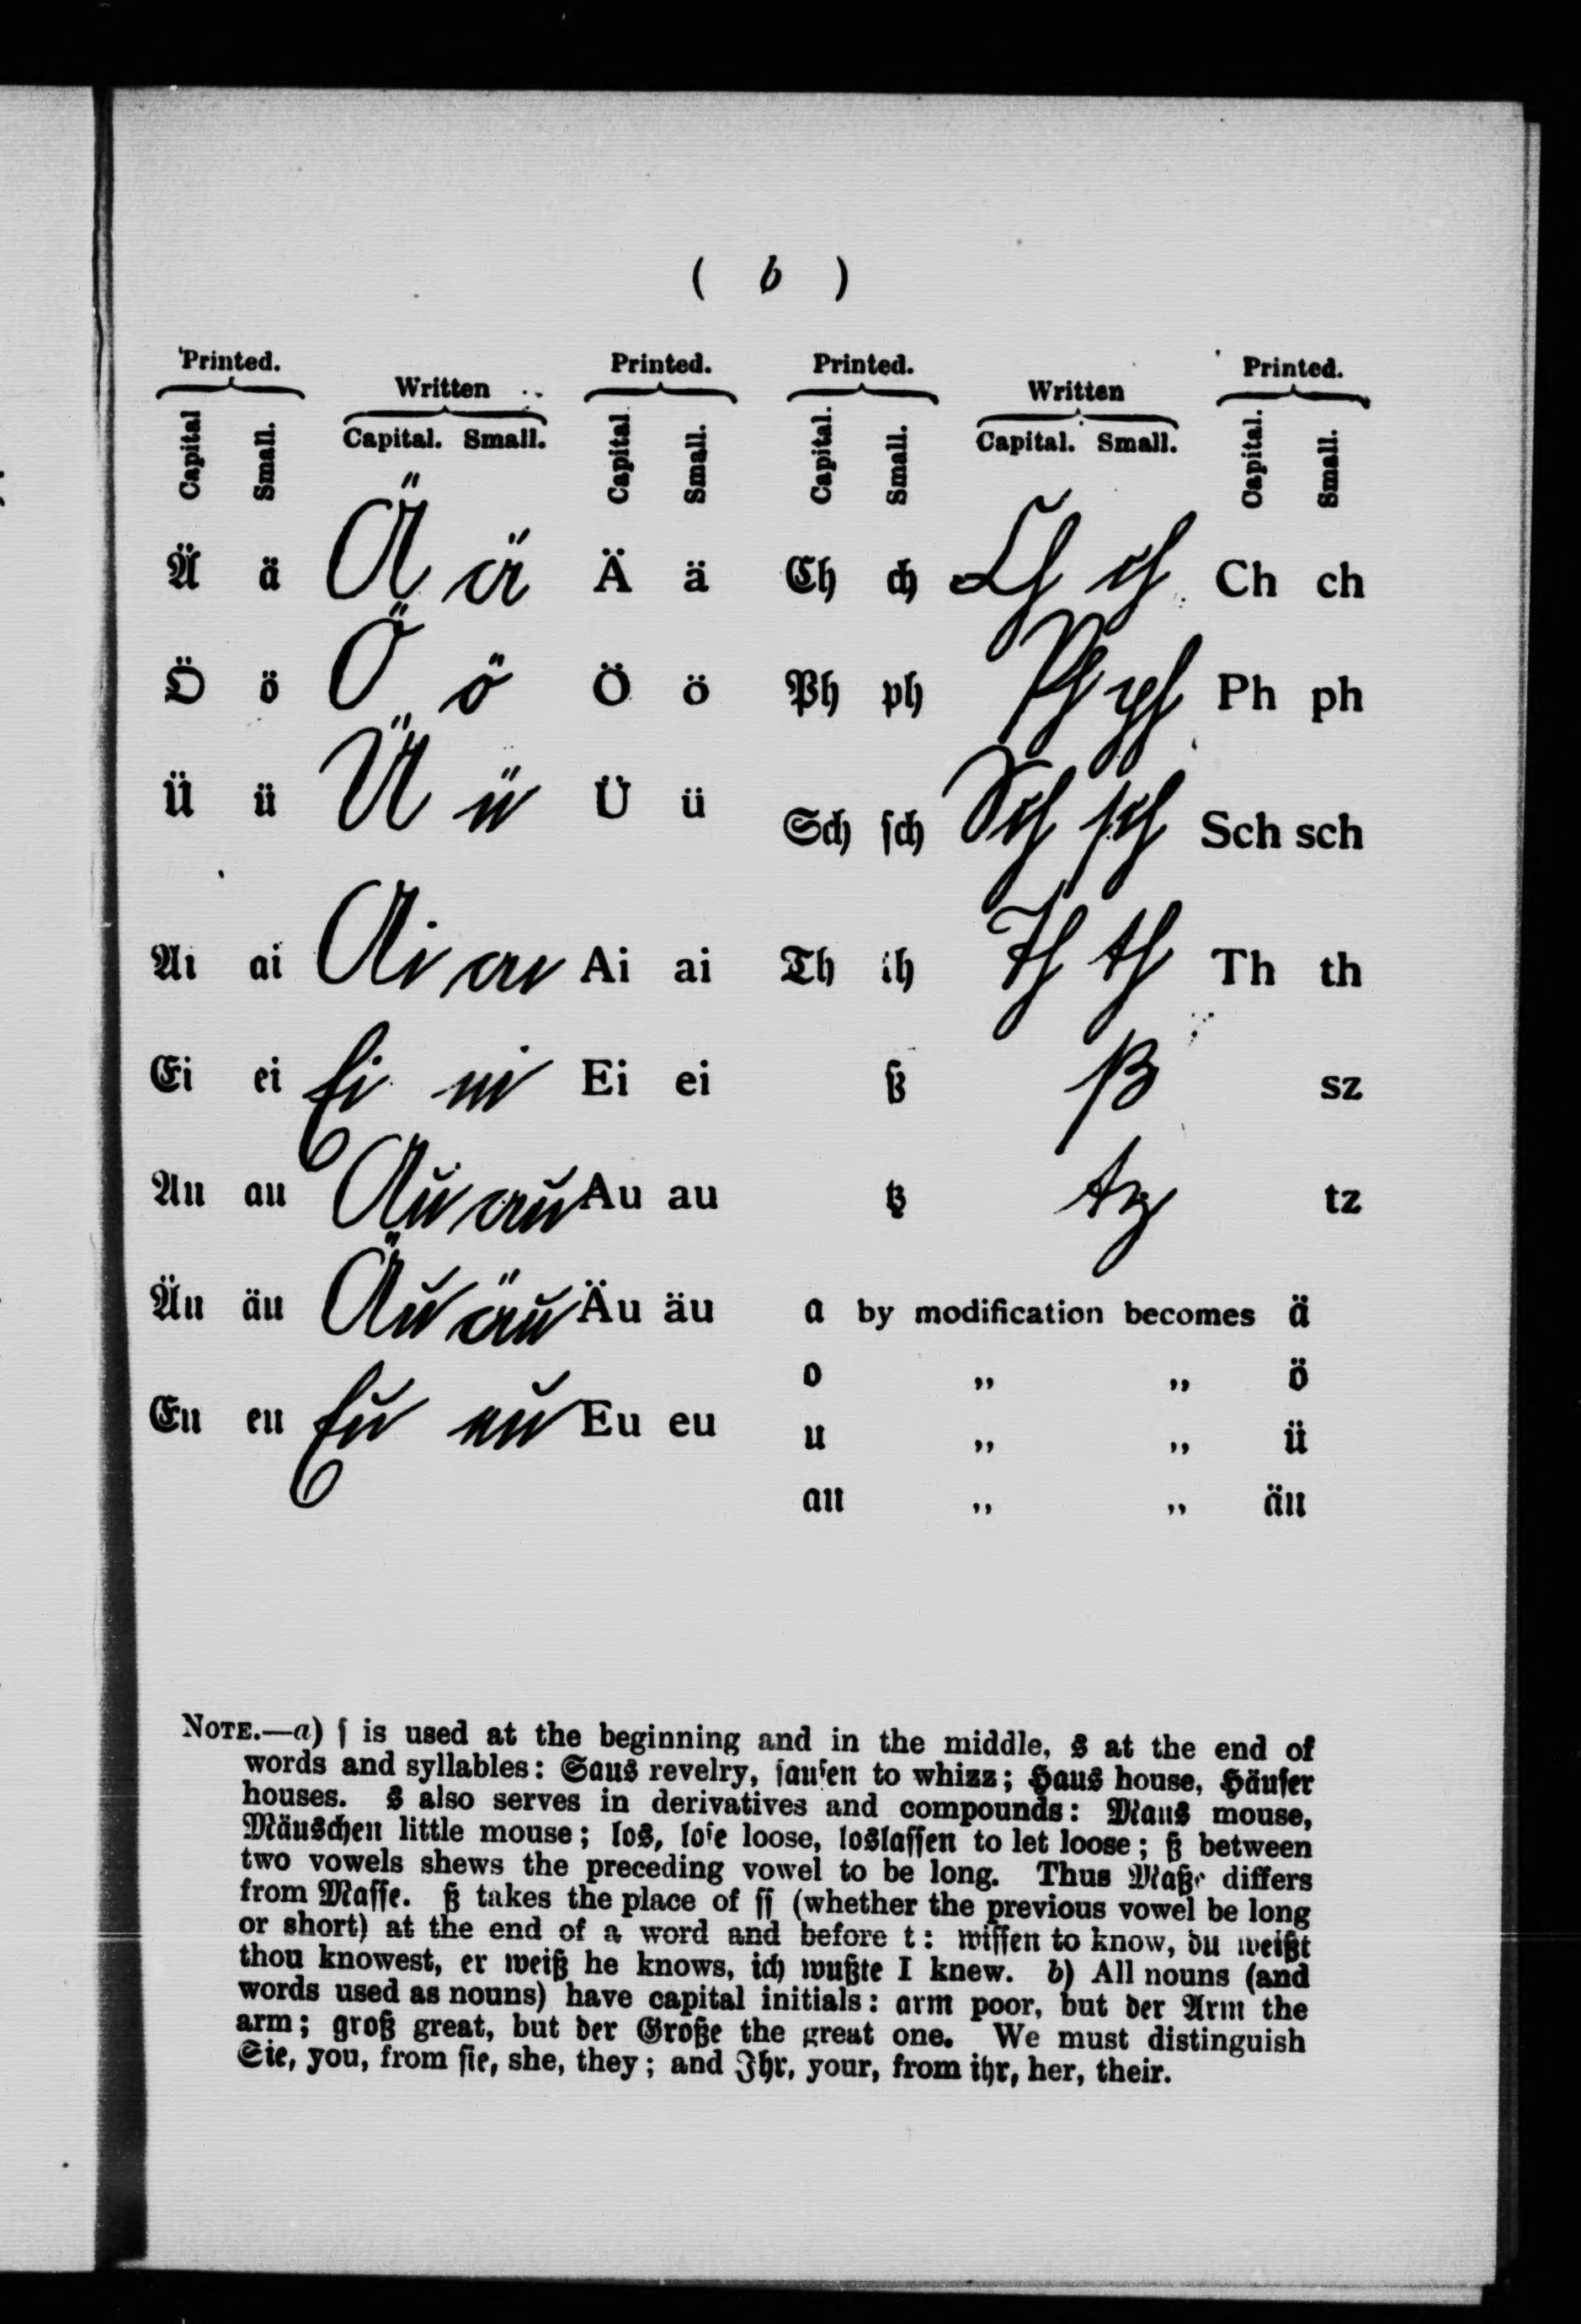 ( b )
Printed. Written Printed. Printed. Written Printed.
Capital Small. Capital. Small. Capital Small. Capital. Small. Capital. Small. Capital. Small.
Ä ä Ä ä Ä ä Ch ch Ch ch Ch ch
Ö ö Ö ö Ö ö Ph ph Ph ph Ph ph
Ü ü Ü ü Ü ü Sch ſch Sch ſch Sch sch
Ai ai Ai ai Ai ai Th th Th th Th th
Ei ei Ei ei Ei ei ß ß sz
Au au Au au Au au tz tz tz
Äu äu Äu äu Äu äu a by modification becomes ä
o „ „ ö
Eu eu Eu eu Eu eu u „ „ ü
au „ „ äu
NOTE.—a) ſ is used at the beginning and in the middle, s at the end of
words and syllables: Saus revelry, ſauſen to whizz; Haus house, Häuſer
houses. s also serves in derivatives and compounds: Maus mouse,
Mäuschen little mouse; los, loſe loose, loslaſſen to let loose; ß between
two vowels shews the preceding vowel to be long. Thus Maße differs
from Maſſe. ß takes the place of ſſ (whether the previous vowel be long
or short) at the end of a word and before t: wiſſen to know, du weißt
thou knowest, er weiß he knows, ich wußte I knew. b) All nouns (and
words used as nouns) have capital initials: arm poor, but der Arm the
arm; groß great, but der Große the great one. We must distinguish
Sie, you, from ſie, she, they; and Ihr, your, from ihr, her, their.